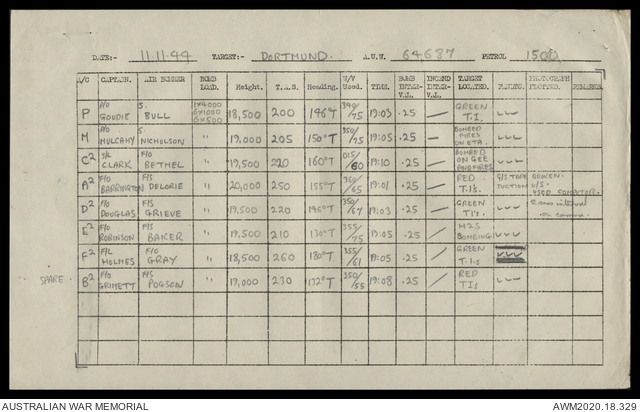 DATE:- 11.11.44 TARGET:- DORTMUND. A.U.W. 64687 PETROL 1500
A/C CAPTAIN. AIR BOMBER BOMB LOAD. Height. T.A.S. Heading. W/V Used. TIME. BOMB INTER- V.L. INCEND INTER- V.L. TARGET LOCATED. PHOTOGRAPH PLOTTED. REMARKS
P P/O GOUDIE S. BULL 1x4000 6x1000 6x500 18,500 200 146°T 340/75 19:03 .25 — GREEN T.I.
M P/O MULCAHY S. NICHOLSON " 19,000 205 150°T 350/75 19:05 .25 — BOMBED FIRES ON ETA.
C² S/L CLARK F/O BETHEL " 19,500 220 160°T 015/60 19:10 .25 BOMBED ON GEE AND FIRES
A² F/O BARRINGTON F/S DELORIE " 20,000 250 155°T 350/65 19:01 .25 RED T.I's. BROKEN. U/S. USED COMPUTOR.
D² F/O DOUGLAS F/S GRIEVE " 19,500 220 146°T 350/67 19:03 .25 GREEN TI's. on camera
E² F/O ROBINSON F/S BAKER " 19,500 210 130°T 355/75 19:05 .25 H2S BOMBING
F² F/L HOLMES F/O GRAY " 18,500 260 180°T 355/61 19:05 .25 GREEN T.I.s
SPARE. B² F/O GRIMETT F/S POGSON " 17,000 230 132°T 350/55 19:08 .25 RED TIs
AUSTRALIAN WAR MEMORIAL AWM2020.18.329